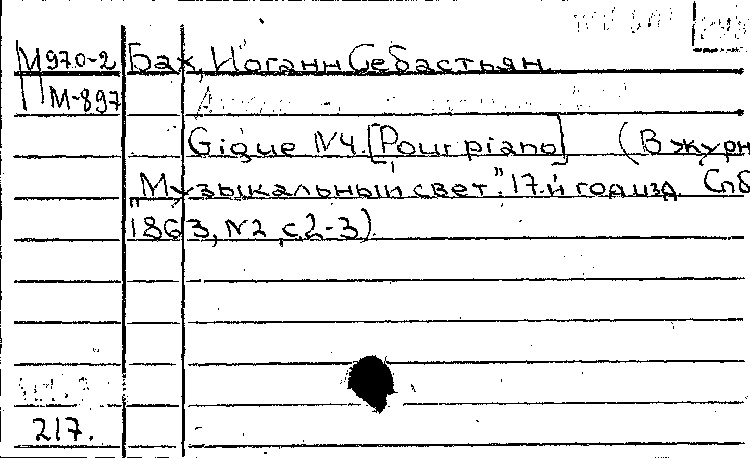 М970-2 Бах, Иоганн Себастьян.
М-897
Gigue N4. [Pour piano] (В журн
„Музыкальный свет." 17-й год изд. Спб
1863, N2, с.2-3).
217.